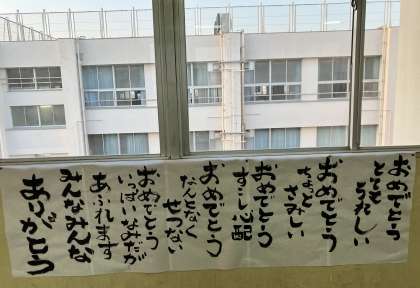 おめでとう
とてもうれしい
おめでとう
ちょっと
さみしい
おめでとう
すこし心配
おめでとう
なんとなく
せつない
おめでとう
いっぱいなみだが
あふれます
みんなみんな
ありがとう